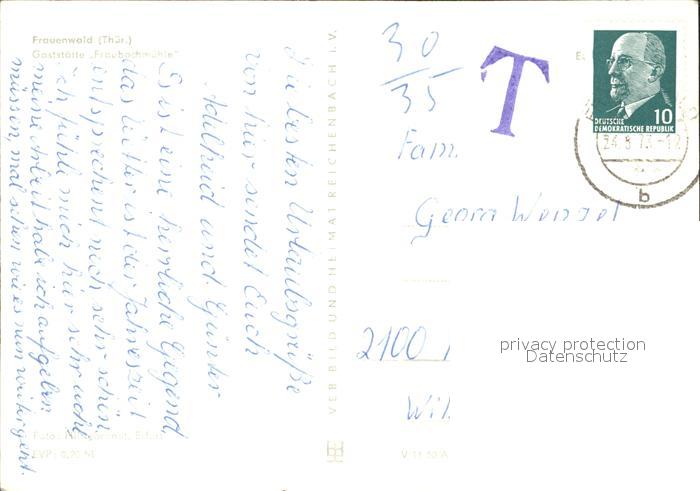 Frauenwald (Thür.)
Gaststätte „Fraubachmühle"
Die besten Urlaubsgrüße
von hier sendet Euch
Adelheid und Günter
Es ist eine herrliche Gegend,
das Wetter ist der Jahreszeit
entsprechend noch sehr schön
ich fühle mich hier sehr wohl
meine Arbeit habe ich aufgeben
müssen, mal sehen wie es nun weitergeht.
Foto: Erfurt
EVP: 0,20 M
VEB BILD UND HEIMAT REICHENBACH I. V.
V 11 50 A
30
35
T
DEUTSCHE 10
DEMOKRATISCHE REPUBLIK
24.8.73-12
b
Fam.
Georg Wenzel
2100
Wit.
privacy protection
Datenschutz